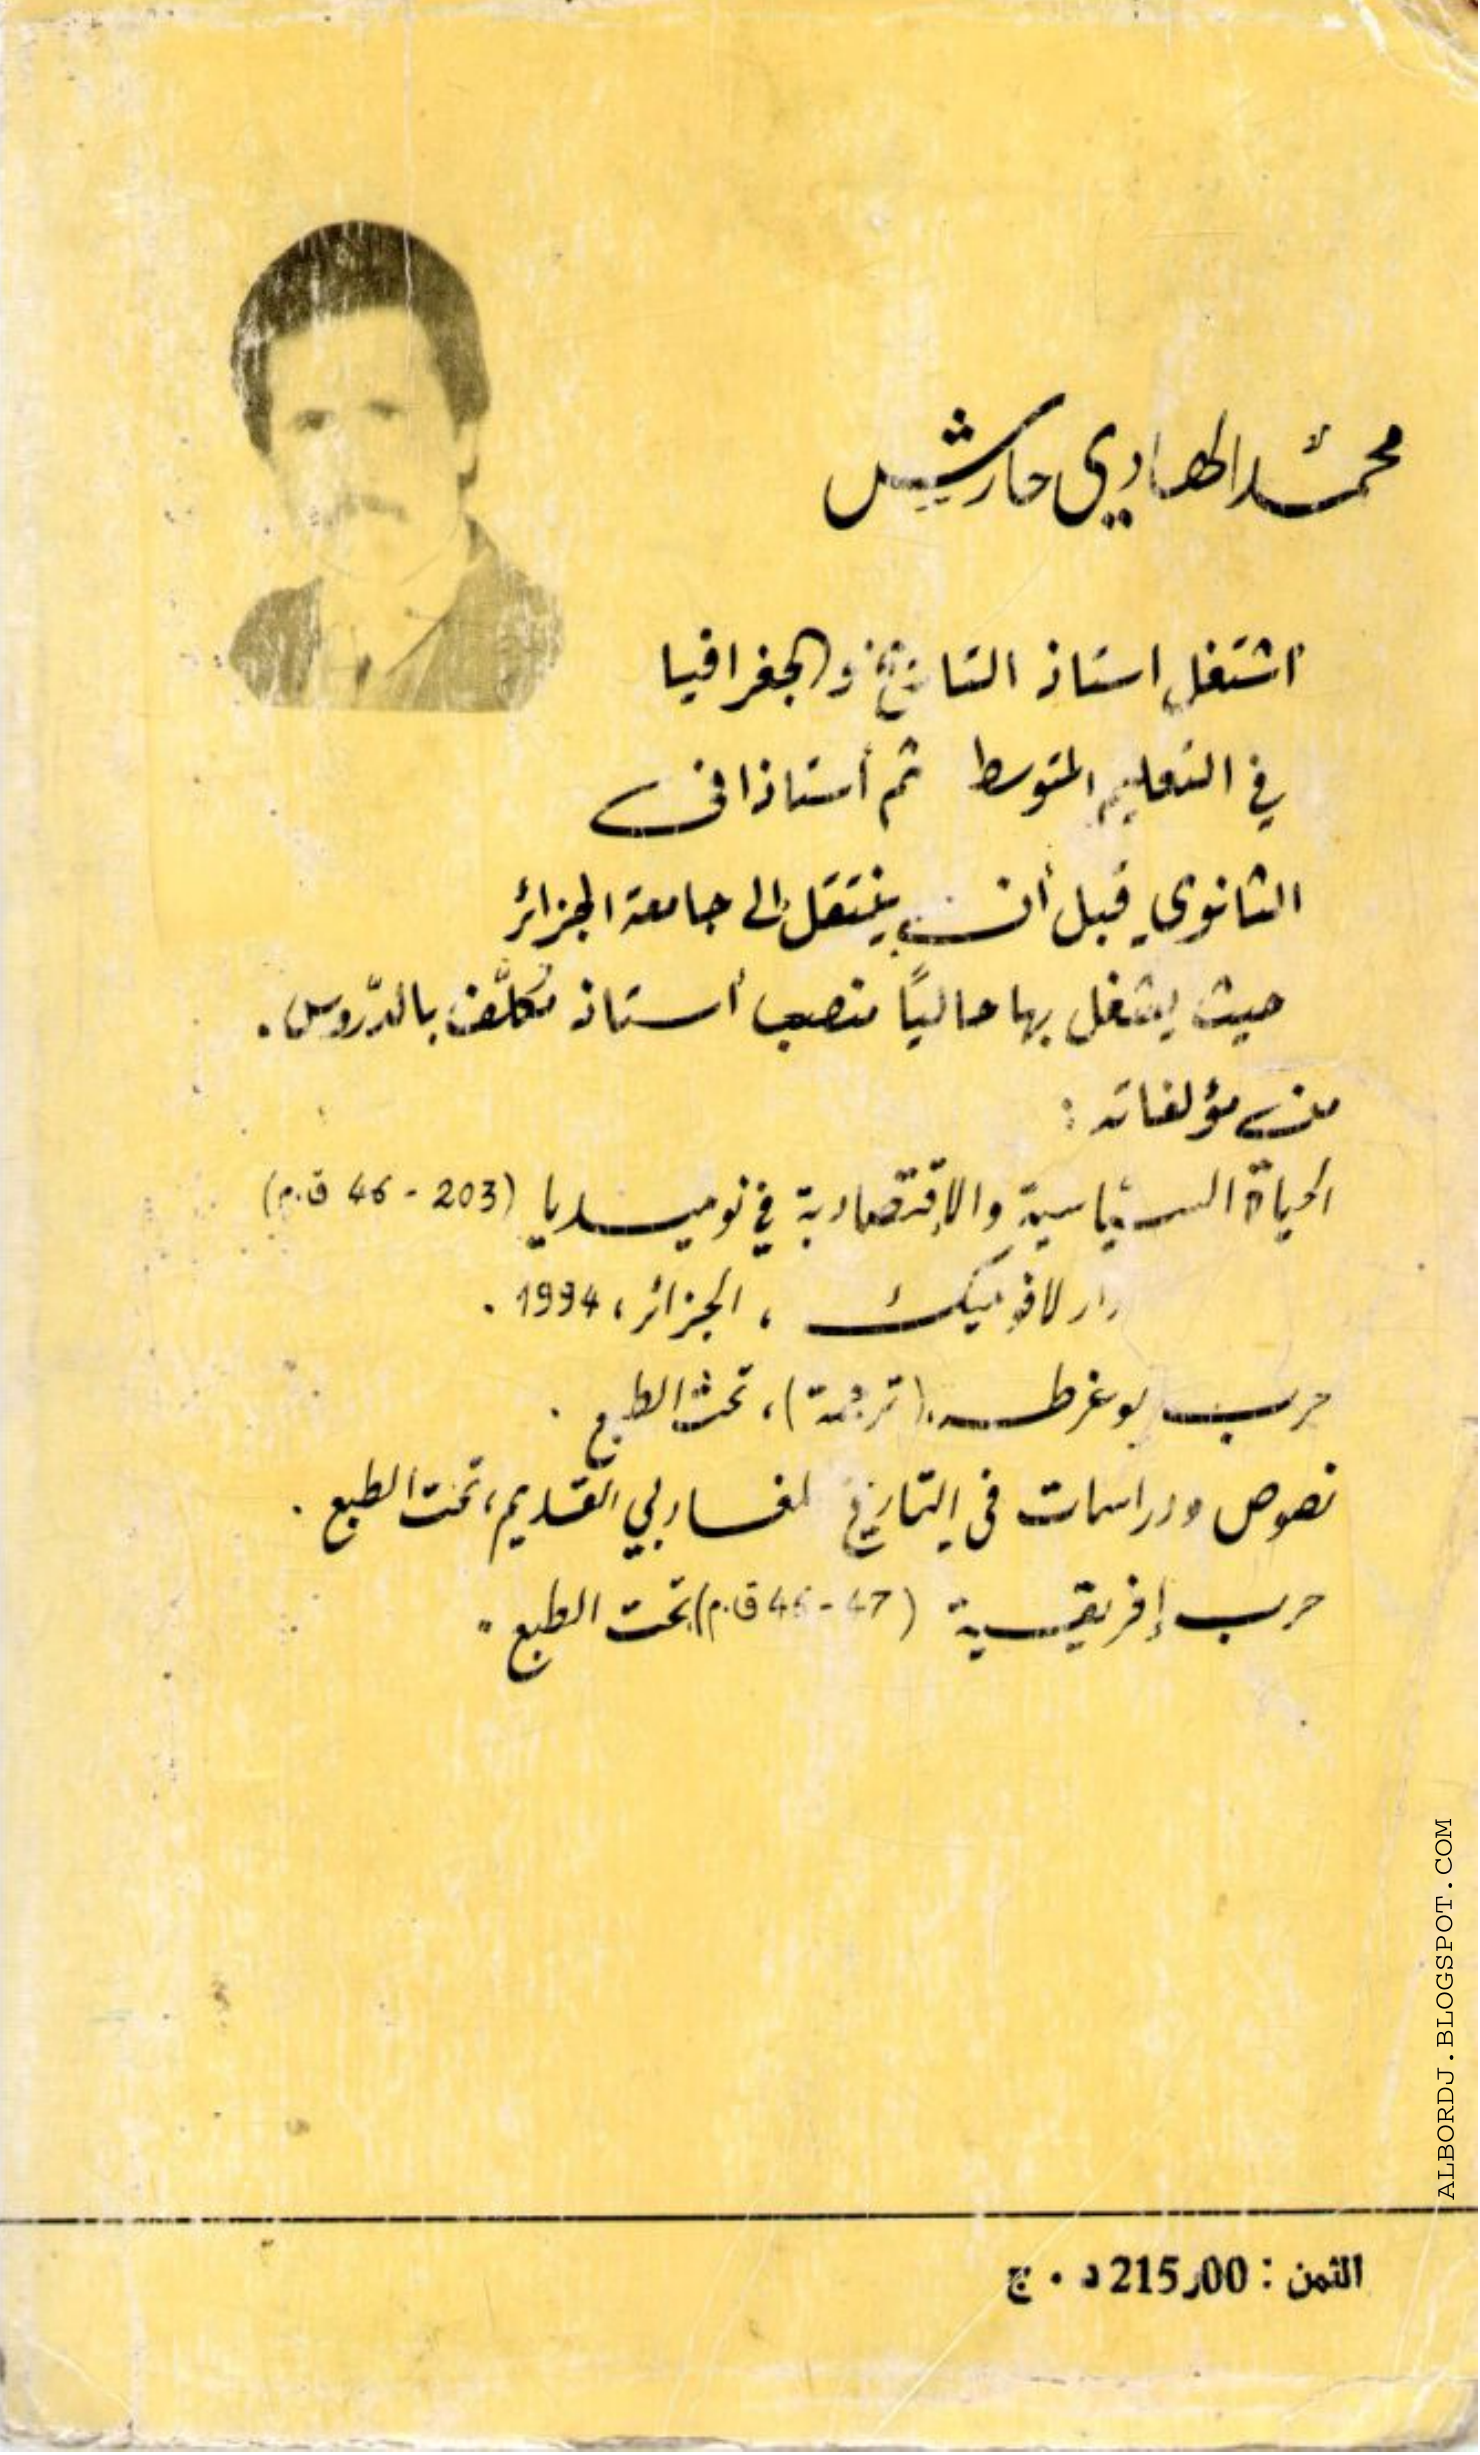 محمّد الهادي حارش
اشتغل استاذ التاريخ والجغرافيا
في التعليم المتوسط ثم أستاذا في
الثانوي قبل أن ينتقل إلى جامعة الجزائر
حيث يشغل بها حاليًا منصب أستاذ مكلَّف بالدّروس.
من مؤلفاته :
الحياة السياسية والإقتصادية في نوميديا (203 - 46 ق.م)
دار لافوميك ، الجزائر، 1994 .
حرب يوغرطه (ترجمة)، تحت الطبع .
نصوص ودراسات في التاريخ المغاربي القديم، تحت الطبع .
حرب إفريقية (47 - 46 ق.م) تحت الطبع .
ALBORDJ.BLOGSPOT.COM
الثمن : 215,00 د . ج